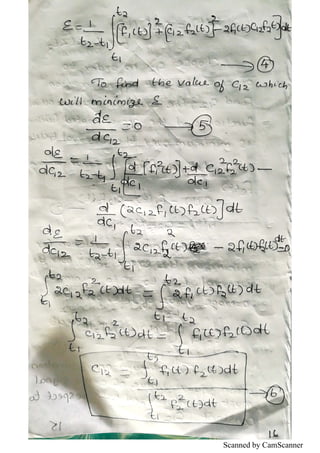 ε = 1/(t2-t1) ∫_{t1}^{t2} [[f1(t)]² + [C12 f2(t)]² - 2f1(t)C12f2(t)] dt
→ (4)
To find the value of C12 which
will minimize ε
dε/dC12 = 0 → (5)
dε/dC12 = 1/(t2-t1) ∫_{t1}^{t2} [d/dC1 [f1²(t)] + d/dC1 C12² f2²(t) -
d/dC1 (2C12 f1(t) f2(t)] dt
dε/dC12 = 1/(t2-t1) ∫_{t1}^{t2} 2C12 f2²(t) - 2f1(t)f2(t) dt = 0
∫_{t1}^{t2} 2C12 f2²(t) dt = ∫_{t1}^{t2} 2f1(t) f2(t) dt
∫_{t1}^{t2} C12 f2²(t) dt = ∫_{t1}^{t2} f1(t) f2(t) dt
C12 = ∫_{t1}^{t2} f1(t) f2(t) dt / ∫_{t1}^{t2} f2²(t) dt → (6)
16
Scanned by CamScanner